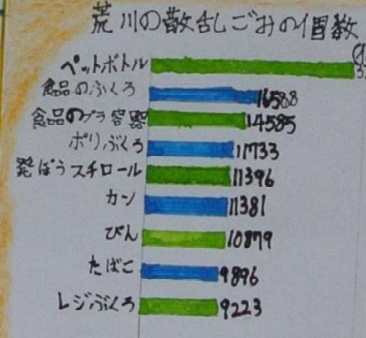 荒川の散乱ごみの個数
ペットボトル
食品のふくろ 16588
食品のプラ容器 14585
ポリぶくろ 11733
発ぽうスチロール 11396
カン 11381
びん 10879
たばこ 9896
レジぶくろ 9223